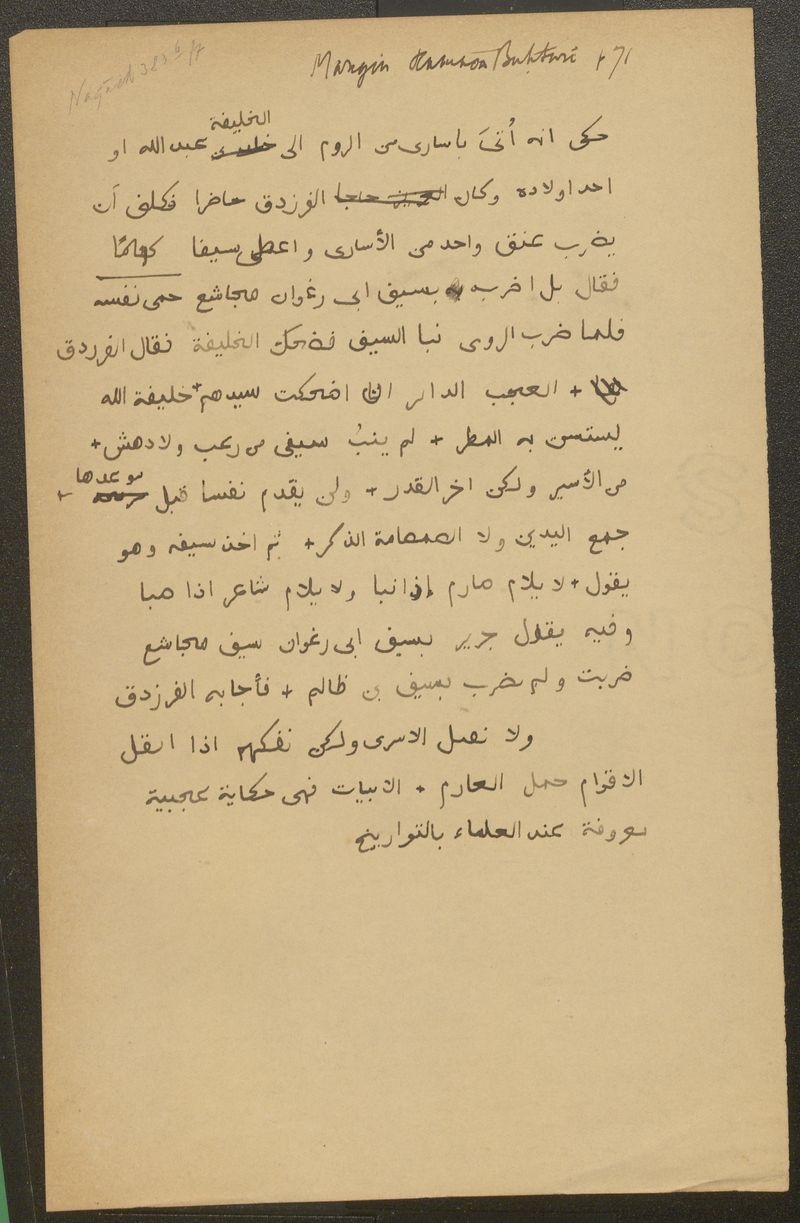 Naqāʾid 383
Margin Buhturi 71
الخليفة
حكى انه أُتىَ باسارى من الروم الى عبد الله او
احد اولاده وكان الفرزدق حاضرا فكلف أن
يضرب عنق واحد من الأسارى واعطى سيفا كهامًا
فقال بل اضرب بسيف ابى رغوان مجاشع حمى نفسه
فلما ضرب الرومى نبا السيف فضحك الخليفة فقال الفرزدق
+ العجب الدالر ان اضحكت سيدهم + خليفة الله
يستسن به المطر + لم ينبُ سيفى من رعب ولا دهش +
موعدها
من الأسير ولكن اخر القدر + ولن يقدم نفسا قبل +
جمع اليدين ولا الصمصامة الذكر + ثم اخذ سيفه وهو
يقول + لا يلام صارم إذا نبا ولا يلام شاعر اذا صبا
وفيه يقول جرير بسيف ابى رغوان سيف مجاشع
ضربت ولم تضرب بسيف بن ظالم + فأجابه الفرزدق
ولا نقتل الاسرى ولكن نفكهم اذا اثقل
الاقوام حمل المغارم + الابيات فهى حكاية عجيبة
معروفة عند العلماء بالتواريخ